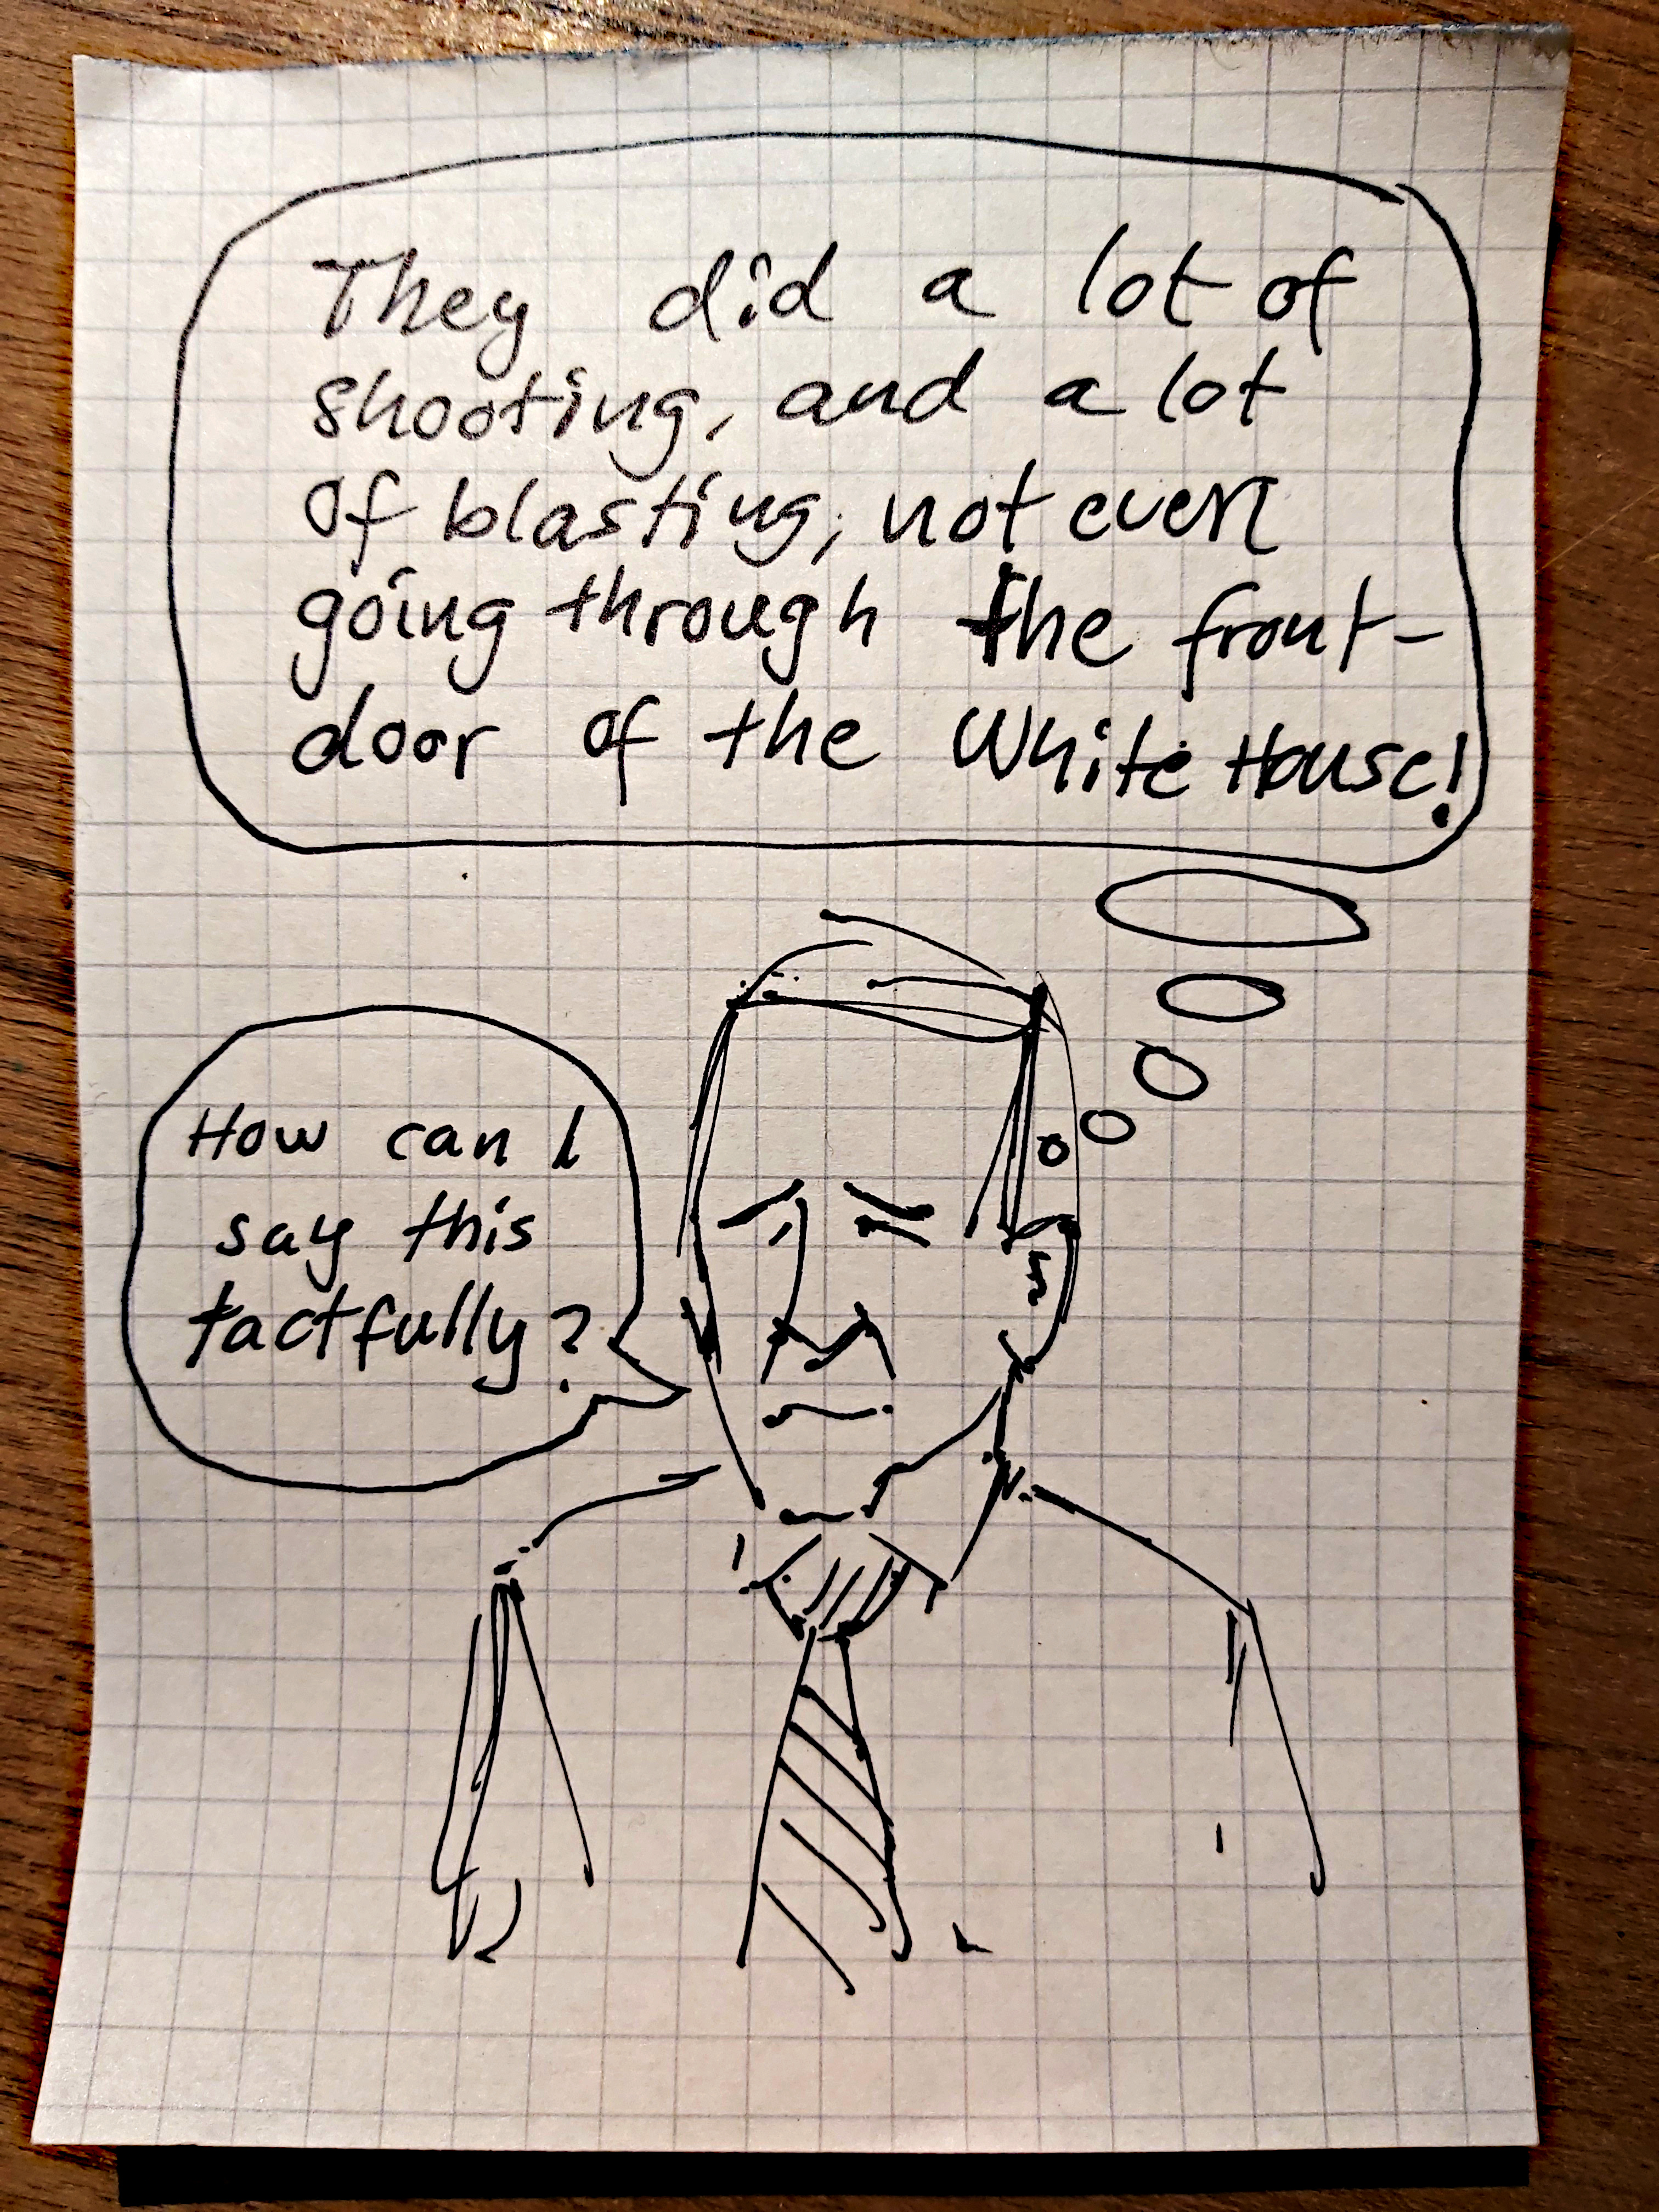 They did a lot of
shooting, and a lot
of blasting, not even
going through the front-
door of the White House!
How can I
say this
tactfully?